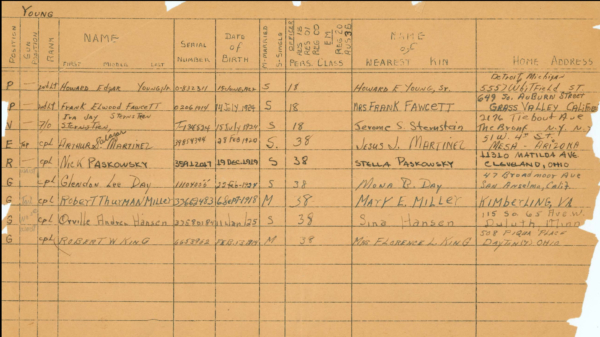 YOUNG
POSITION GUN POSITION RANK NAME FIRST MIDDLE LAST SERIAL NUMBER DATE of BIRTH M-MARRIED S-SINGLE OFFICER RES 18 RES 01 REG 00 EM REG 20 AUS 38 PERS. CLASS NAME of NEAREST KIN HOME ADDRESS
P HOWARD Edgar Young Jr S 18 HOWARD E YOUNG, Sr. Detroit Michigan 5557 Whitfield ST
P FRANK Elwood FAWCETT 14 July 1924 S 18 MRS FRANK FAWCETT 649 So. AUBURN STREET GRASS VALLEY CALIFO
Ira Jay Sternstein 15 July 1924 S 18 Jerome S. Sternstein 2196 Tiebout Ave The Bronx N.Y. N.Y.
E cpl ARTHUR MARTINEZ 28 Feb 1920 S 38 JESUS J. MARTINEZ 51 W. 4th ST. MESA - ARIZONA
R cpl NICK PASKOWSKY 35912067 19 DEC 1919 S 38 STELLA PASKOWSKY MATILDA AVE CLEVELAND, OHIO
G cpl Glendon Lee DAY S 38 MONA DAY 47 Broadmoor Ave San Anselmo, Calif
G cpl ROBERT THURMAN MILLER M 38 MARY E. MILLER KIMBERLING, VA
G cpl Orville Andrew Hansen S 38 Sina Hansen 115 So 65 Ave W. Duluth Minn
G cpl ROBERT W KING M 38 MRS FLORENCE L KING 508 PIQUA PLACE DAYTON, OHIO